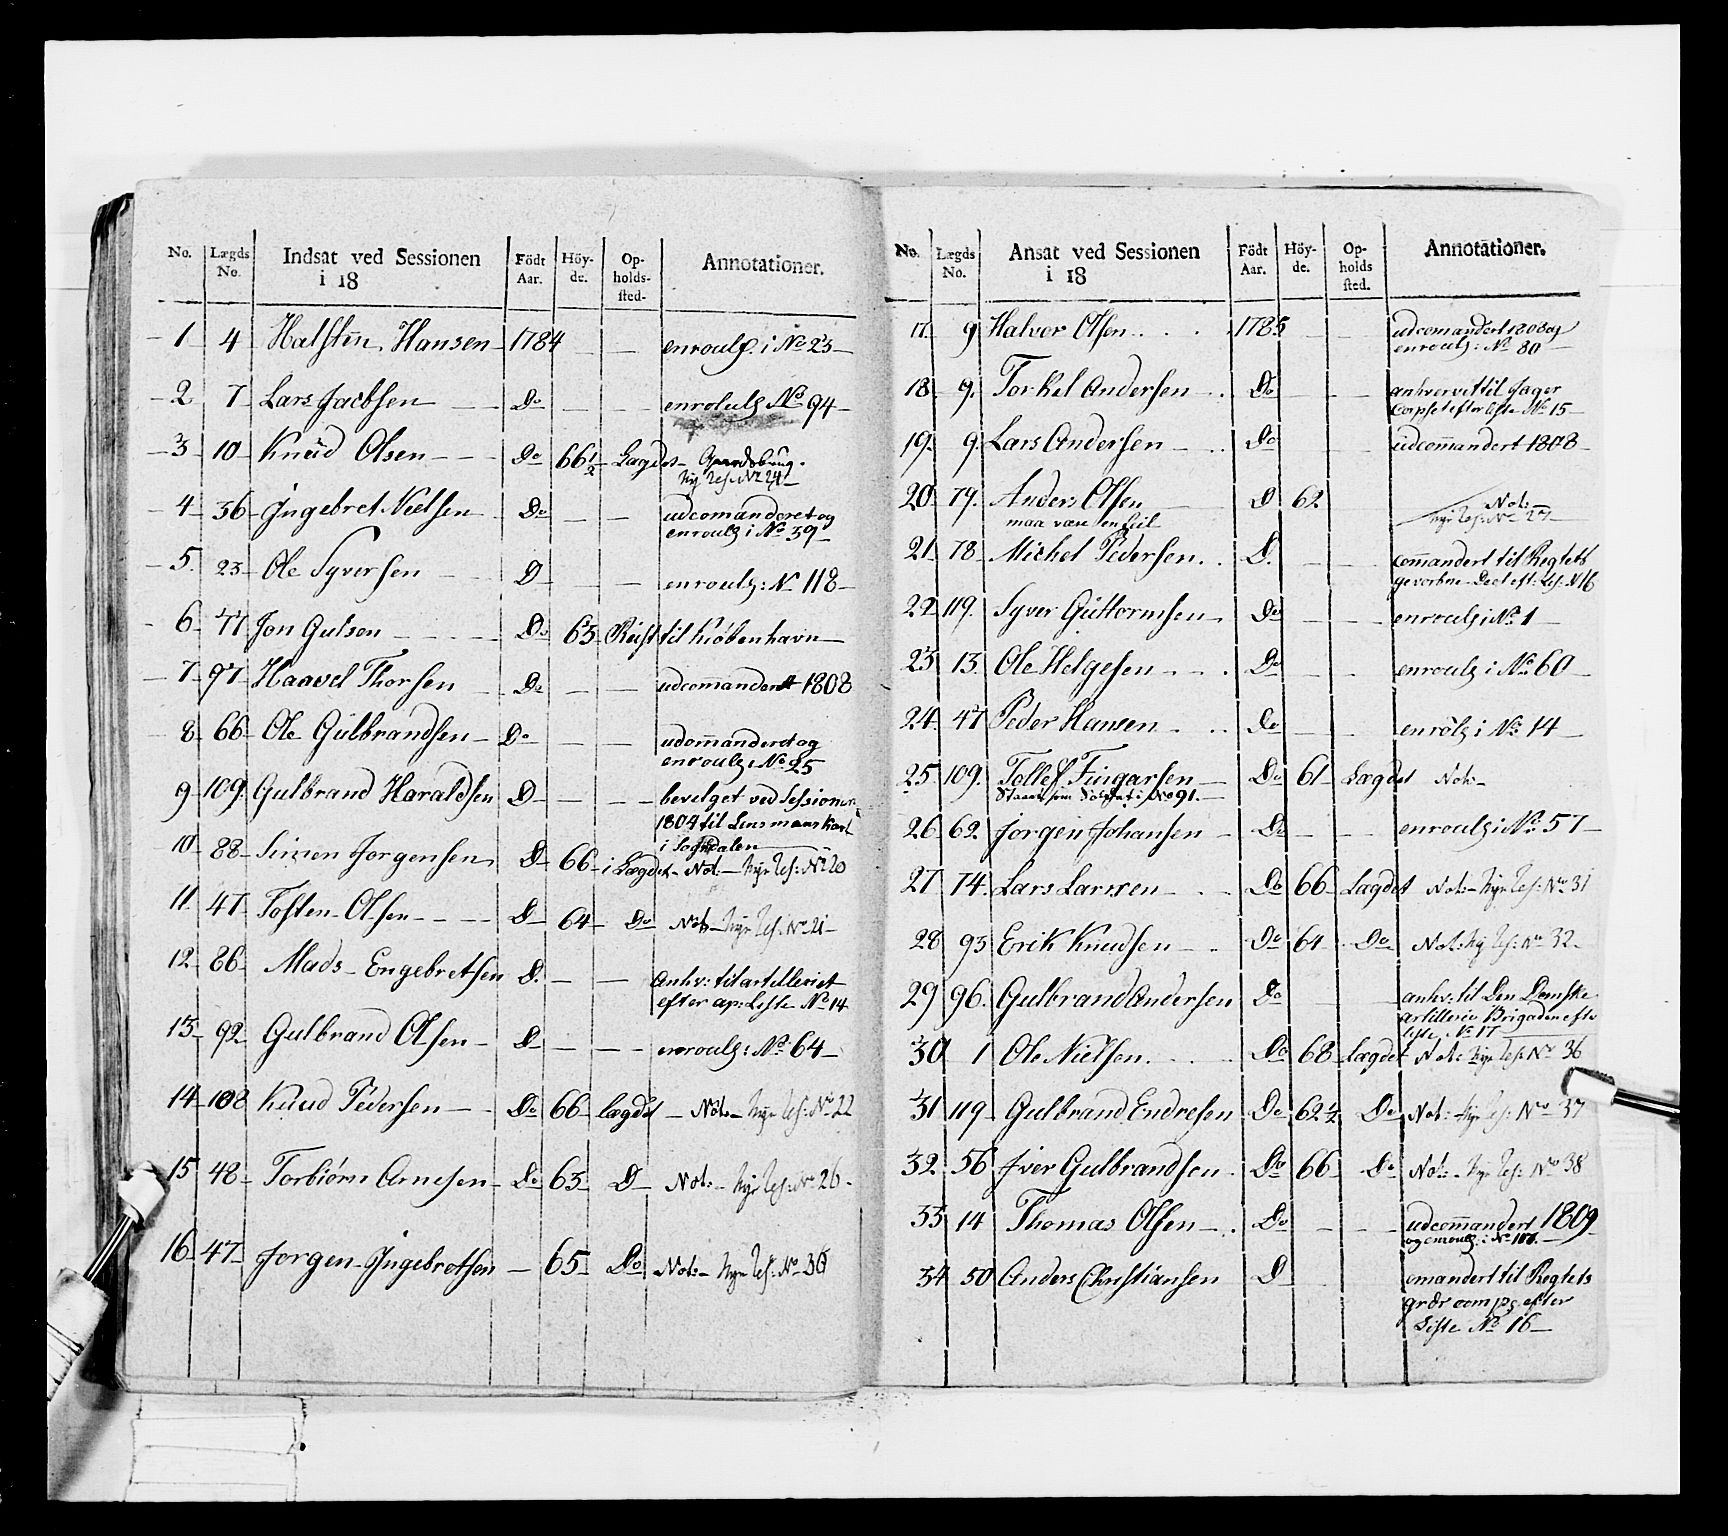 No. Lægds No. Indsat ved Sessionen i 18 Födt Aar. Höy-de. Op-holds-sted. Annotationer.
1 4 Halsten Hansen 1784 — — enroulz. i No 23
2 7 Lars Jacobsen Do — — enroulz No 94
3 10 Knud Olsen Do 66 1/2 Lægdet Gaardsbrug.
Nyr Les: No 24
4 36 Ingebret Nielsen Do — — udcomanderet og
enroulz i No 39
5 23 Ole Syversen D — — enroulz: No 118
6 77 Jon Gulsen Do 63 Reist til Kiøbenhavn
7 97 Haavel Thorsen Do — — udcommandert 1808
8 66 Ole Gulbrandsen Do — — udcommanderet og
enroulz i No 25
9 109 Gulbrand Haraldsen D — — bevelget ved Sessionen
1804 til Lensmans Karl
i Sogndalen
10 88 Simen Jorgensen D 66 i Lægdet Not: Nyr Les: No 20
11 47 Tosten Olsen D 64 Do Not: Nyr Les: No 21
12 86 Mads Engebretsen D. — — Anhv: til artilleriet
efter ap: Liste No 14
13 92 Gulbrand Olsen D — — enroulz: No 64
14 108 Knud Pedersen Do 66 Lægdet Not: Nyr Les: No 22
15 48 Torbiörn Arnesen Do 63 D Not: Nyr Les: No 26
16 47 Jorgen Ingebretsen — 65 Do Not: Nyr Les: No 30
No. Lægds No. Ansat ved Sessionen i 18 Födt Aar. Höy-de. Op-holds sted. Annotationer.
17. 9 Halver Olsen 1785 — — udcomandert 1808 og
enroulz: No 80
18 9. Torkel Andersen Do — — anhvervet til Jager
Corpset efter Liste No 15
19. 9. Lars Andersen Do — — udcommandert 1808
20 79. Anders Olsen D 62 Not:
maa være en feil Nyr Les: No 27
21 78 Michel Pedersen D. — — commandert til Regtets
gevorbne Deel eft: Les: N 16
22 119. Syver Guttormsen Do — — enroulz i No 1
23 13. Ole Helgesen Do — — enroulz i No 60
24 47 Peder Hansen Do — — enrölz i No 14
25. 109. Tollef Fingarsen Do 61 Lægdet Not:
Staaer som Soldat i No 91.
26 62 Jorgen Johansen Do — — enroulz i No 57
27 74. Lars Larsen Do 66 Lægdet Not: Nyr Les: No 31
28 93 Erik Knudsen Do 64 Do Not: Ny Les: No 32
29 96. Gulbrand Andersen Do anhv: til Den Domske
artillerie Brigaden efter
Liste No 17
30 1 Ole Nielsen Do 68 Lægdet Not: Nyr Les: No 36
31 119 Gulbrand Endresen Do 62 1/2 Do Not: Nyr Les: No 37
32 56 Iver Gulbrandsen Do 66 Do Not: Nyr Les: No 38
33 14 Thomas Olsen Do — — udcommandert 1809
og enroulz: i No 100.
34 50 Anders Christiansen D omandert til Regtets
grdr comps efter
Liste No 16